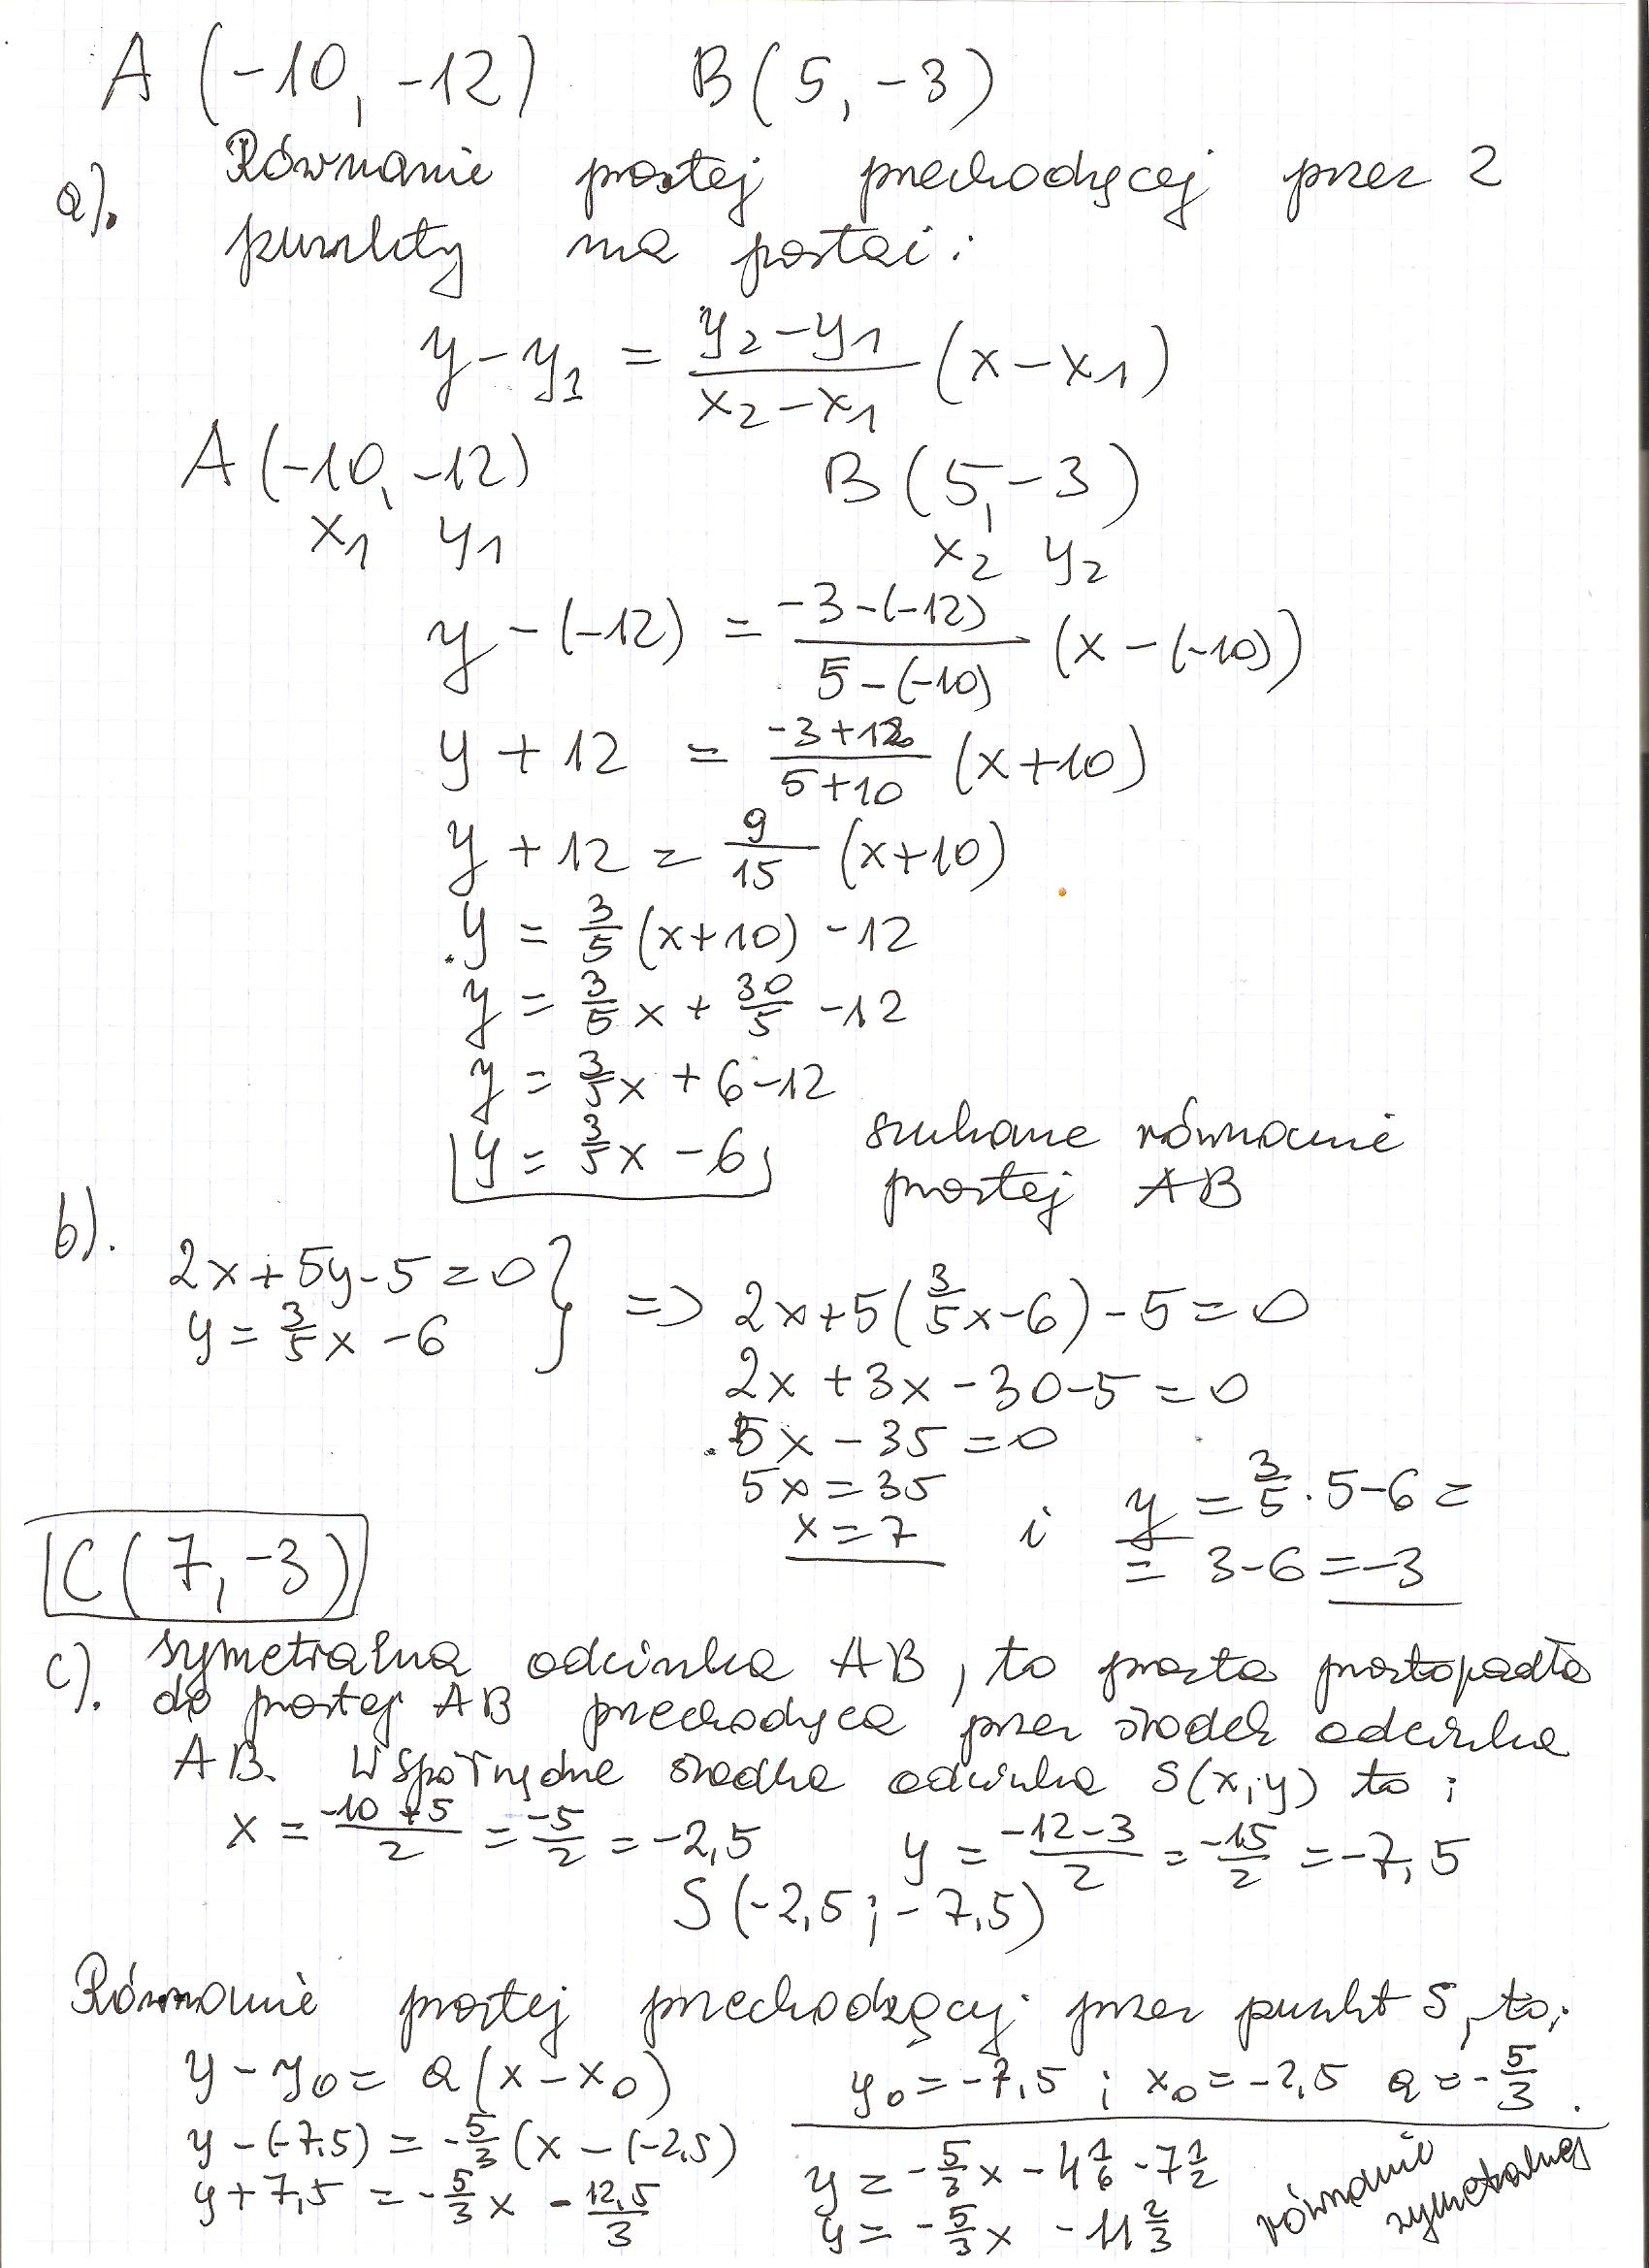 A (-10, -12) B (5, -3)
a). Równanie prostej przechodzącej przez 2
punkty ma postać:
y - y₁ = \frac{y₂-y₁}{x₂-x₁} (x - x₁)
A (-10, -12) B (5, -3)
x₁ y₁ x₂ y₂
y - (-12) = \frac{-3-(-12)}{5-(-10)} (x - (-10))
y + 12 = \frac{-3+12}{5+10} (x+10)
y + 12 = \frac{9}{15} (x+10)
y = \frac{3}{5} (x+10) - 12
y = \frac{3}{5} x + \frac{30}{5} - 12
y = \frac{3}{5} x + 6 - 12
y = \frac{3}{5} x - 6 szukane równanie
prostej AB
b).
2x + 5y - 5 = 0 } => 2x + 5(\frac{3}{5}x - 6) - 5 = 0
y = \frac{3}{5} x - 6
2x + 3x - 30 - 5 = 0
5x - 35 = 0
5x = 35
x = 7 i y = \frac{3}{5} · 5 - 6 =
= 3 - 6 = -3
C (7, -3)
c). symetralna odcinka AB, to prosta prostopadła
do prostej AB przechodząca przez środek odcinka
AB. Współrzędne środka odcinka S(x, y) to:
x = \frac{-10+5}{2} = \frac{-5}{2} = -2,5 y = \frac{-12-3}{2} = \frac{-15}{2} = -7,5
S (-2,5 ; -7,5)
Równanie prostej przechodzącej przez punkt S, to:
y - y₀ = a (x - x₀) y₀ = -7,5 ; x₀ = -2,5 a = -\frac{5}{3}.
y - (-7,5) = -\frac{5}{3} (x - (-2,5)
y + 7,5 = -\frac{5}{3} x - \frac{12,5}{3}
y = -\frac{5}{3} x - 4\frac{1}{6} - 7\frac{1}{2}
y = -\frac{5}{3} x - 11\frac{2}{3}
równanie
symetralnej